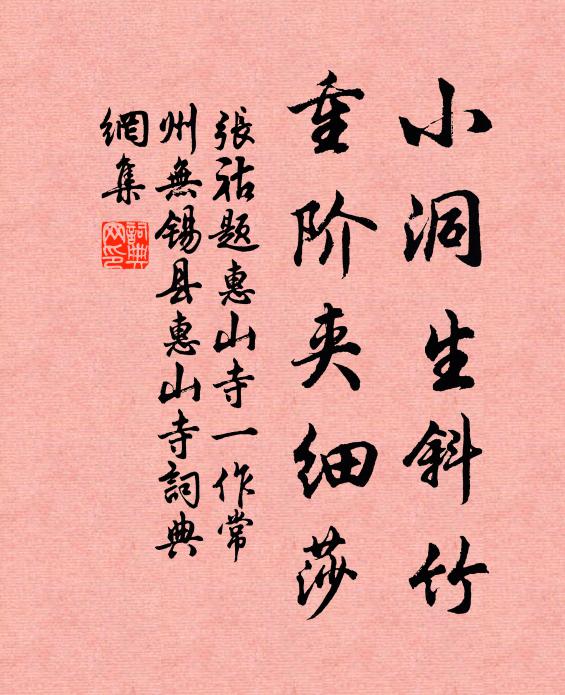 小洞生斜竹
重阶夹细莎
張祜题惠山寺一作常
州無锡县惠山寺詞典
網集
詞典网印